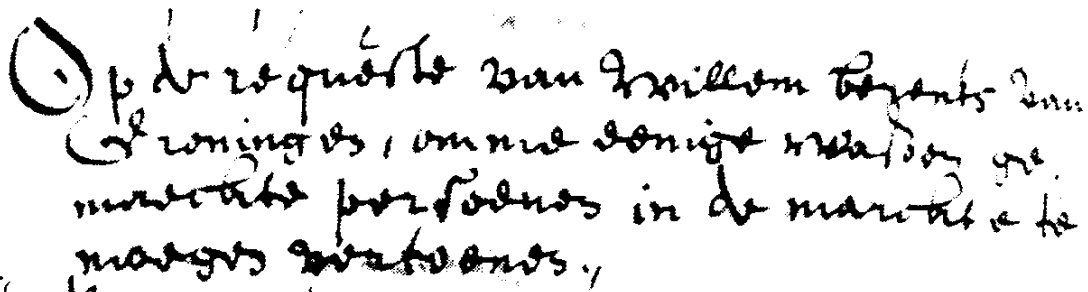 Op de requeste van Willem berents van
Groningen, omme eenige wassen ge
maeckte persoenen in de marckte te
moegen vertoenen.,